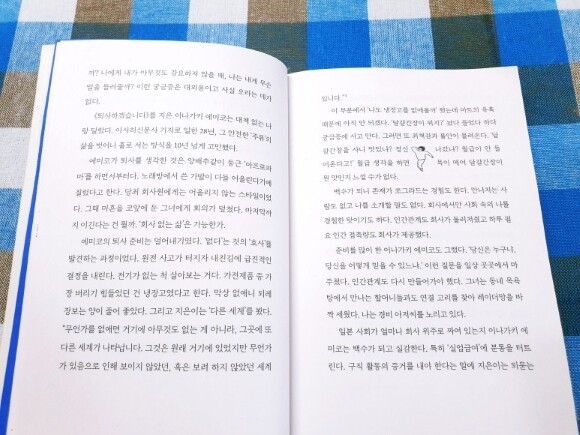 까? 나에게 내가 아무것도 강요하지 않을 때, 나는 내게 무슨
말을 들려줄까? 이런 궁금증은 대외용이고 사실 오라는 데가
없다.
《퇴사하겠습니다》를 지은 이나가키 에미코는 대책 없는 나
랑 달랐다. 아사히신문사 기자로 일한 28년, 그 안전한 '주류'의
삶을 벗어나 홀로 서는 방식을 10년 넘게 고민했다.
에미코가 퇴사를 생각한 것은 양배추같이 둥근 '아프로파
마'를 하면서부터다. 노래방에서 쓴 가발이 다들 어울린다기에
질렀다고 한다. 당최 회사원에게는 어울리지 않는 스타일이었
다. 그때 마흔을 코앞에 둔 그녀에게 회의가 덮쳤다. 마지막까
지 이긴다는 건 뭘까. '회사 없는 삶'은 가능한가.
에미코의 퇴사 준비는 덜어내기였다. '없다'는 것의 '호사'를
발견하는 과정이었다. 원전 사고가 터지자 내친김에 급진적인
결정을 내린다. 전기가 없는 척 살아보는 거다. 가전제품 중 가
장 버리기 힘들었던 건 냉장고였다고 한다. 막상 없애니 되레
장보는 양이 줄어 좋았다. 그리고 지은이는 "다른 세계"를 봤다.
"무언가를 없애면 거기에 아무것도 없는 게 아니라, 그곳에 또
다른 세계가 나타납니다. 그것은 원래 거기에 있었지만 무언가
가 있음으로 인해 보이지 않았던, 혹은 보려 하지 않았던 세계
입니다."
이 부분에서 '나도 냉장고를 없애볼까' 했는데 머드의 유혹
때문에 아직 안 되겠다. '달걀간장이 뭐지?' 보다 들었다 하다
궁금증에 시고 만다. 그러면 또 죄책감의 불안이 몰려온다. '달
걀간장을 사니 맛있냐? 정신 나갔냐? 월급이 안 들
어온다고!' 월급 생각을 하면 목이 메어 달걀간장이
뭔 맛인지 느낄 수가 없다.
백수가 되니 존재가 쪼그라드는 경험도 한다. 만나자는 사
람도 없고 나를 소개할 말도 없다. 회사에서만 사회 속의 나를
경험한 탓이기도 하다. 인간관계도 회사가 둘러쳐줬고 하루 필
요 인간 접촉량도 회사가 제공했다.
준비를 많이 한 이나가키 에미코도 그랬다. '당신은 누구냐,
당신을 어떻게 믿을 수 있느냐.' 이런 질문을 일상 곳곳에서 마
주쳤다. 인간관계도 다시 만들어가야 했다. 그녀는 동네 목욕
탕에서 만나는 할머니들과도 연결 고리를 찾아 레이더망을 바
짝 세웠다. 나는 경비 아저씨를 노리고 있다.
일본 사회가 얼마나 회사 위주로 짜여 있는지 이나가키 에
미코는 백수가 되고 실감한다. 특히 '실업급여'에 분통을 터트
린다. 구직 활동의 증거를 내야 한다는 말에 지은이는 되묻는